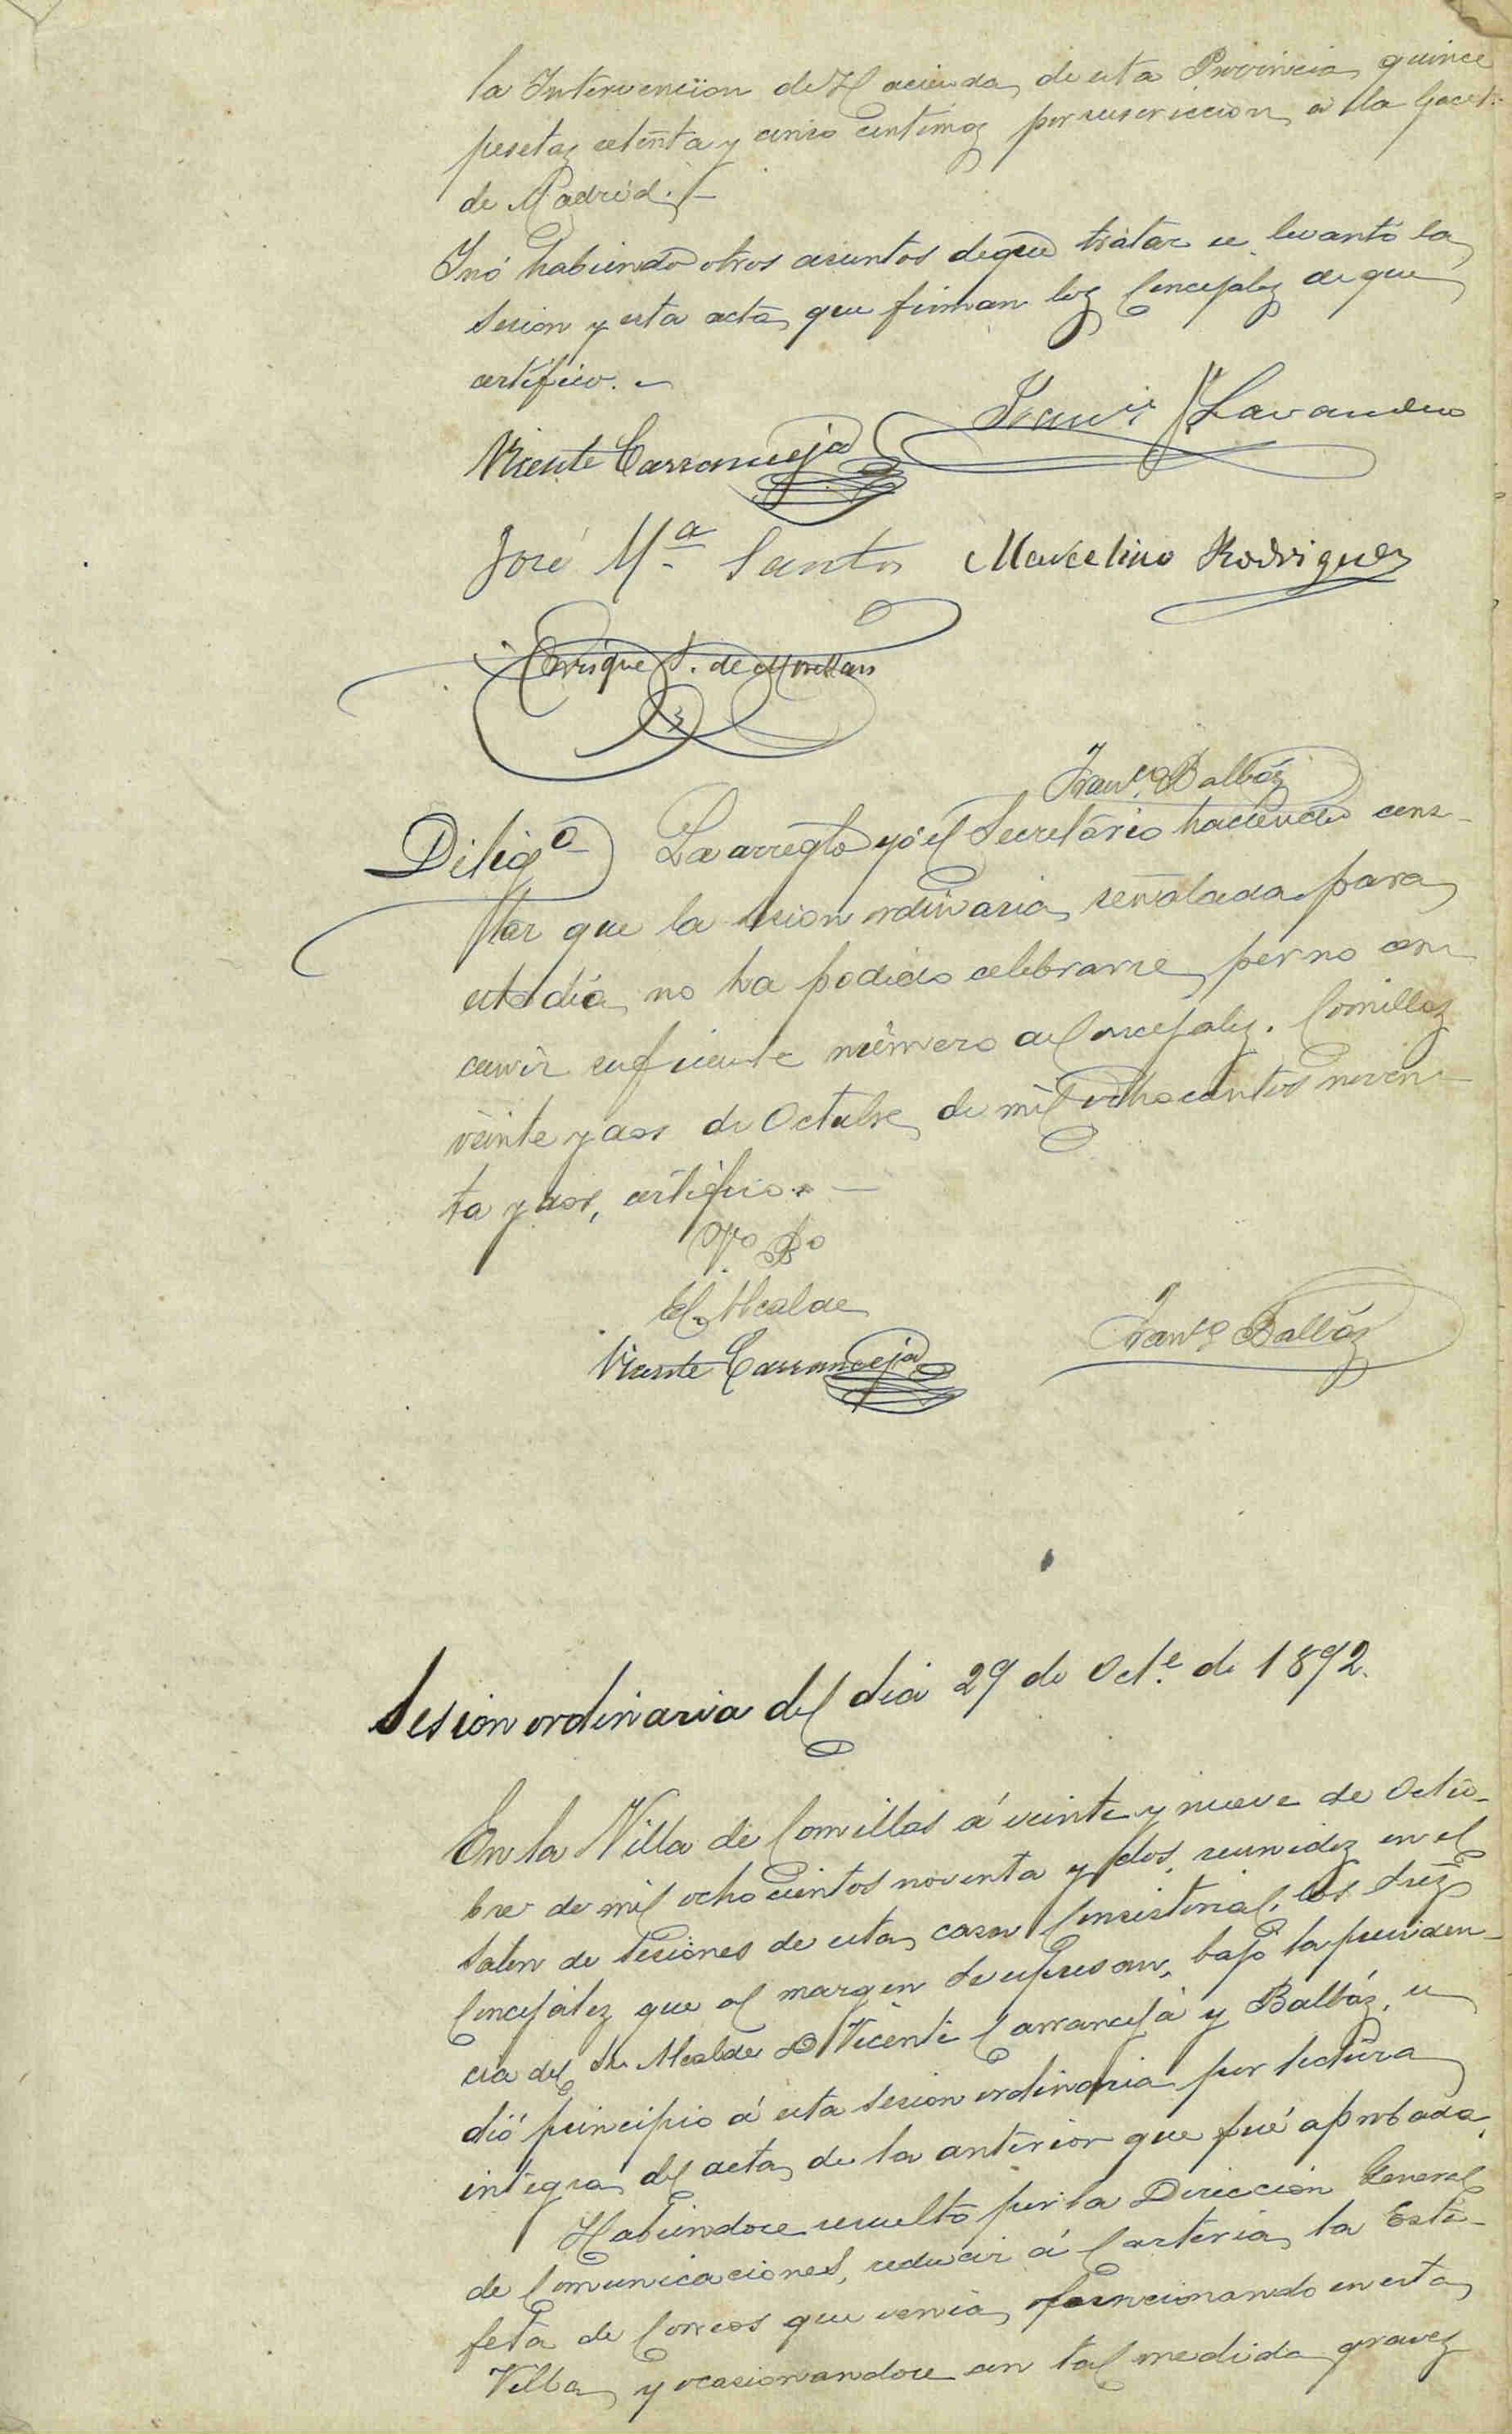 la Intervencion de Hacienda de esta Provincia quince
pesetas setenta y cinco centimos por suscriccion a la Gaceta
de Madrid.
Y nó habiendo otros asuntos de que tratar se levantó la
sesion y esta acta que firman los Concejales de que
certifico.
Vicente Carranceja
Lavandero
José Mª Santos Marcelino Rodriguez
Enrique
Franco Balbás
Diligª La arreglo yó el Secretário haciendo cons-
tar que la sesion ordinaria señalada para
este dia no ha podido celebrarse por no con
currir suficiente número de Concejales. Comillas
veinte y dos de Octubre de mil ochocientos noven-
ta y dos, certifico.
Vo Bo
El Alcalde
Vicente Carranceja Franco Balbás
Sesion ordinaria del dia 29 de Octe. de 1892.
En la Villa de Comillas á veinte y nueve de Octu-
bre de mil ochocientos noventa y dos, reunidos en el
salon de sesiones de esta casa Consistorial, los Sres
Concejales que al margen se espresan, bajo la presiden-
cia del Sr Alcalde D Vicente Carranceja y Balbás, se
dió principio á esta sesion ordinaria por lectura
integra del acta de la anterior que fué aprobada.
Habiendose resuelto por la Dirección General
de Comunicaciones, reducir á Carteria la Esta-
feta de Correos que venia funcionando en esta
Villa y ocasionandose con tal medida graves